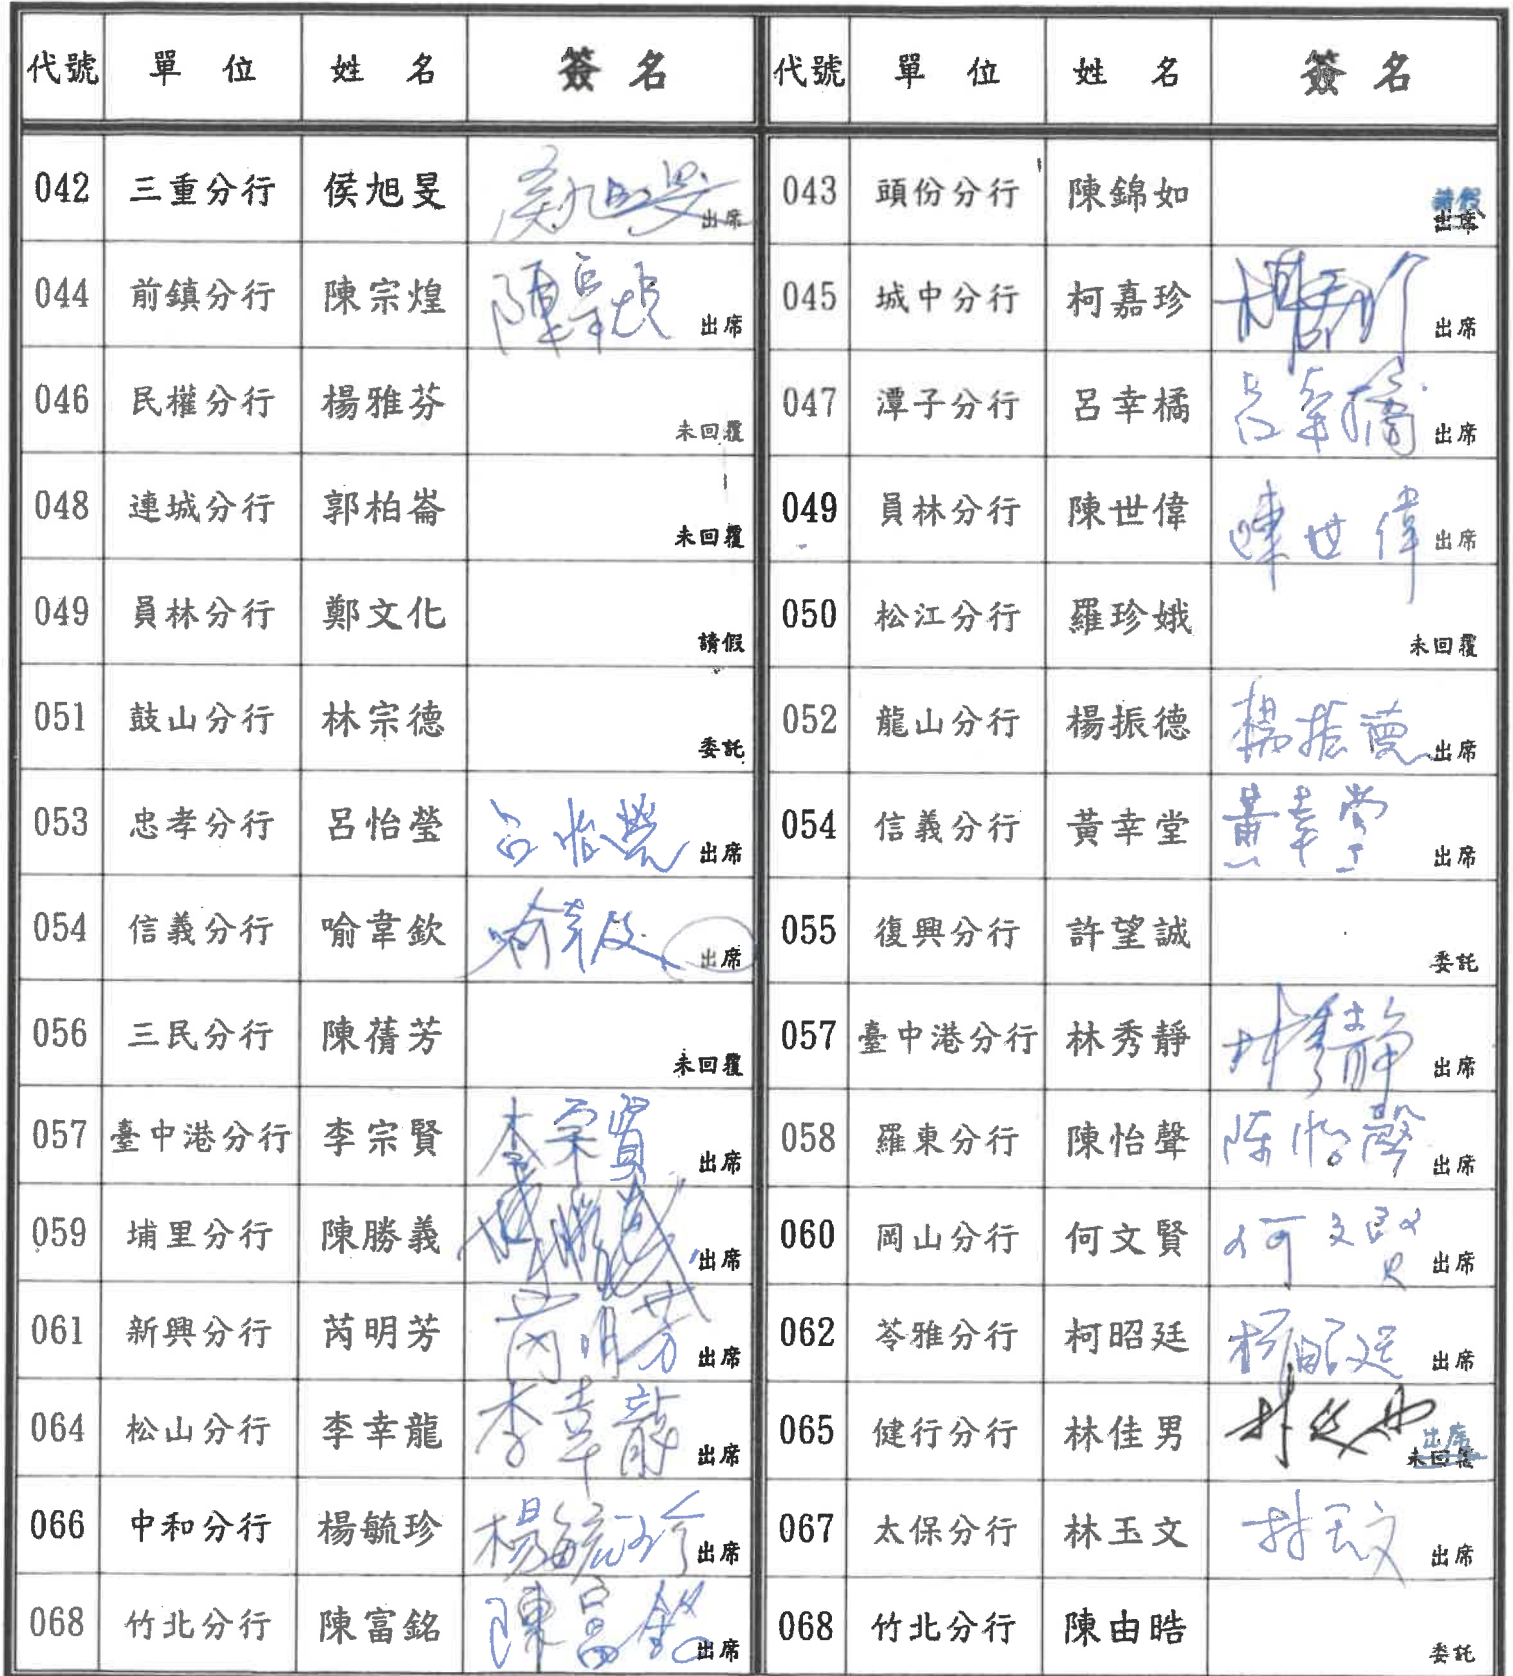 代號 單位 姓名 簽名 代號 單位 姓名 簽名
042 三重分行 侯旭旻 侯旭旻 出席 043 頭份分行 陳錦如 請假 出席
044 前鎮分行 陳宗煌 陳宗煌 出席 045 城中分行 柯嘉珍 柯嘉珍 出席
046 民權分行 楊雅芬 未回覆 047 潭子分行 呂幸橘 呂幸橘 出席
048 連城分行 郭柏崙 未回覆 049 員林分行 陳世偉 陳世偉 出席
049 員林分行 鄭文化 請假 050 松江分行 羅珍娥 未回覆
051 鼓山分行 林宗德 委託 052 龍山分行 楊振德 楊振德 出席
053 忠孝分行 呂怡瑩 呂怡瑩 出席 054 信義分行 黃幸堂 黃幸堂 出席
054 信義分行 喻韋欽 喻韋欽 出席 055 復興分行 許望誠 委託
056 三民分行 陳蒨芳 未回覆 057 臺中港分行 林秀靜 林秀靜 出席
057 臺中港分行 李宗賢 李宗賢 出席 058 羅東分行 陳怡聲 陳怡聲 出席
059 埔里分行 陳勝義 陳勝義 出席 060 岡山分行 何文賢 何文賢 出席
061 新興分行 芮明芳 芮明芳 出席 062 苓雅分行 柯昭廷 柯昭廷 出席
064 松山分行 李幸龍 李幸龍 出席 065 健行分行 林佳男 林佳男 出席 未回覆
066 中和分行 楊毓珍 楊毓珍 出席 067 太保分行 林玉文 林玉文 出席
068 竹北分行 陳富銘 陳富銘 出席 068 竹北分行 陳由晧 委託